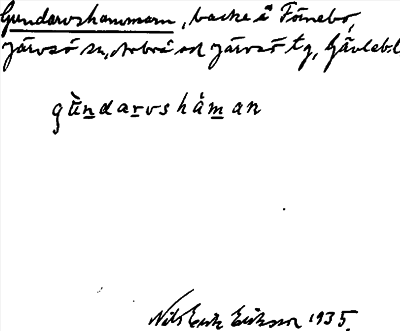 Gundarvshammarn, backe i Förnebo,
Järvsö sn, Arbrå och Järvsö tg, Gävleb.l.
gùndarvshàman
Nils Erik Eriksson 1935.